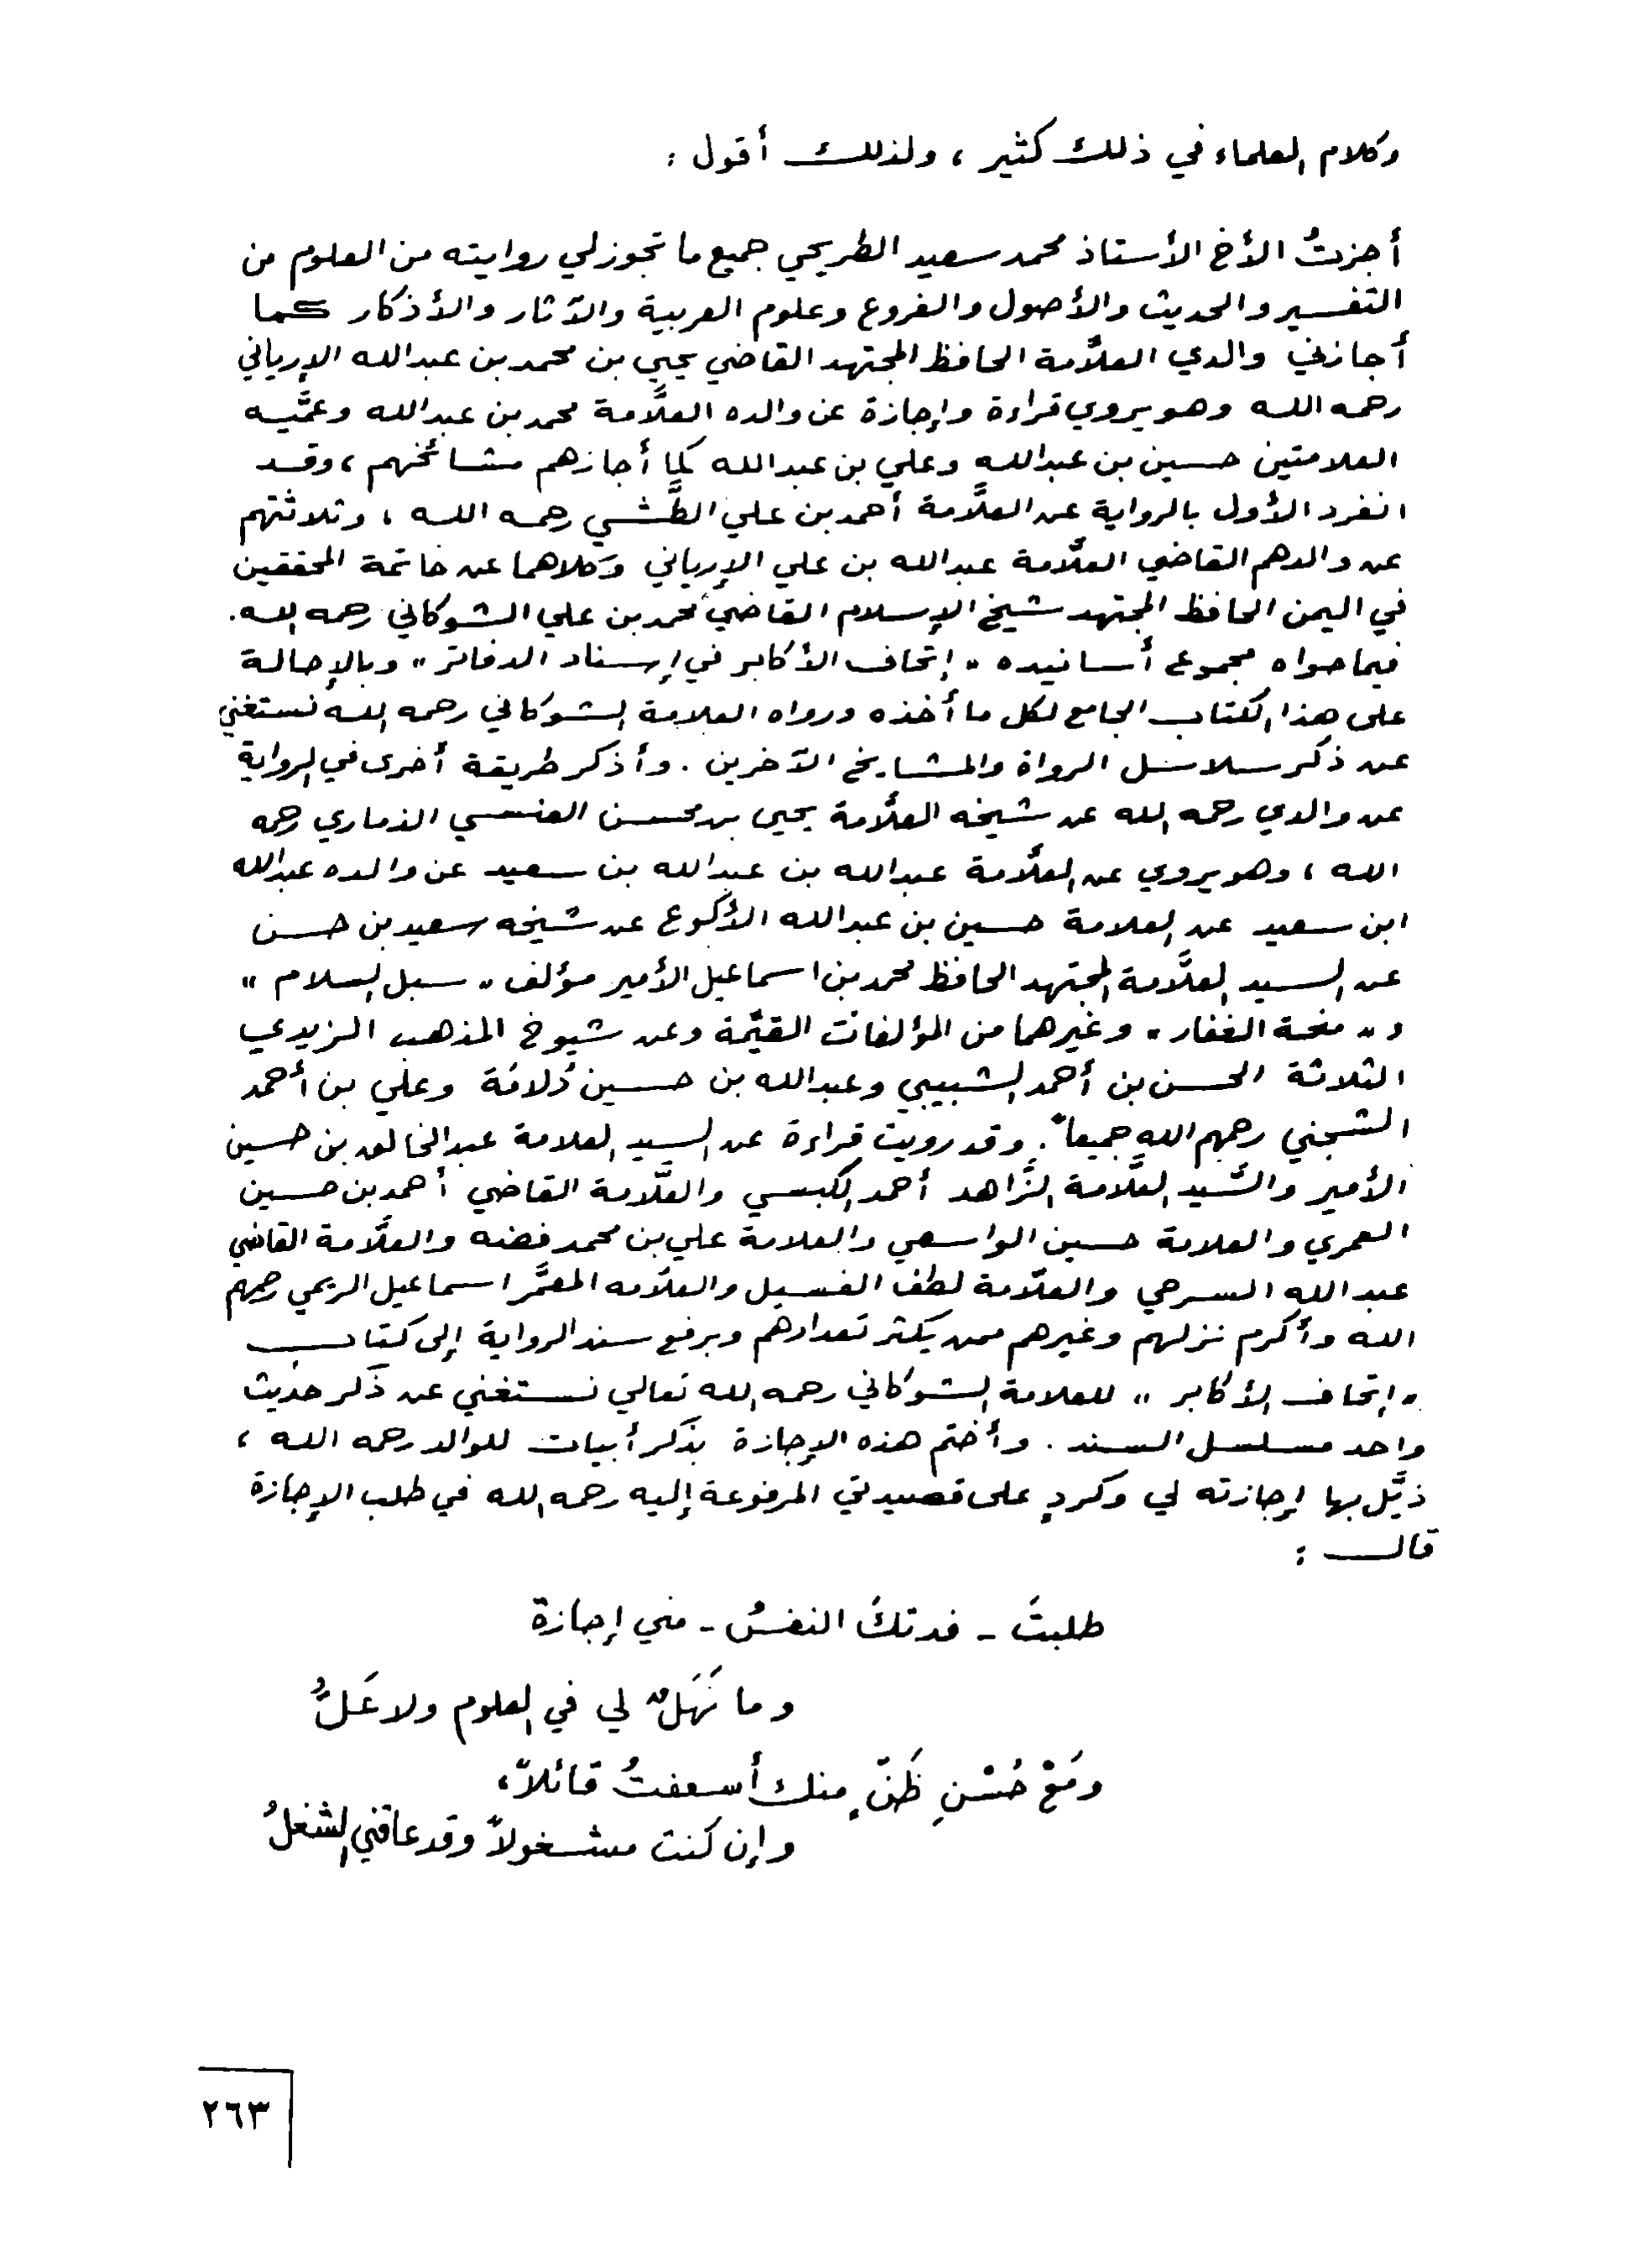 وكلام العلماء في ذلك كثير ، ولذلك أقول :
أجزتُ الأخ الأستاذ محمد سعيد الطريحي جميع ما تجوز لي روايته من العلوم من
التفسير والحديث والأصول والفروع وعلوم العربية والآثار والأذكار كما
أجازني والدي العلاَّمة الحافظ المجتهد القاضي يحيى بن محمد بن عبدالله الإرياني
رحمه الله وهو يروي قراءة وإجازة عن والده العلاَّمة محمد بن عبدالله وعمَّيه
العلامتين حسين بن عبدالله وعلي بن عبدالله كما أجازهم مشائخهم ، وقد
انفرد الأول بالرواية عن العلاَّمة أحمد بن علي الطَّشي رحمه الله ، وثلاثتهم
عن والدهم القاضي العلاَّمة عبدالله بن علي الإرياني وكلاهما عن خاتمة المحققين
في اليمن الحافظ المجتهد شيخ الإسلام القاضي محمد بن علي الشوكاني رحمه الله .
فيما حواه مجموع أسانيده " إتحاف الأكابر في إسناد الدفاتر " وبالإحالة
على هذا الكتاب الجامع لكل ما أخذه ورواه العلامة الشوكاني رحمه الله نستغني
عن ذكر سلاسل الرواة والمشايخ الآخرين . وأذكر طريقة أخرى في الرواية
عن والدي رحمه الله عن شيخه العلاَّمة يحيى بن محسن العنسي الذماري رحمه
الله ، وهو يروي عن العلاَّمة عبدالله بن عبدالله بن سعيد عن والده عبدالله
ابن سعيد عن العلامة حسين بن عبدالله الأكوع عن شيخه سعيد بن حسن
عن السيد العلاَّمة المجتهد الحافظ محمد بن اسماعيل الأمير مؤلف " سبل السلام "
و " منحة الغفار " وغيرهما من المؤلفات القيِّمة وعن شيوخ المذهب الزيدي
الثلاثة الحسن بن أحمد الشبيبي وعبدالله بن حسين دُلامَة وعلي بن أحمد
الشجني رحمهم الله جميعاً . وقد رويت قراءة عن السيد العلامة عبدالخالق بن حسين
الأمير والسَّيد العلاَّمة الزَّاهد أحمد الكبسي والعلاَّمة القاضي أحمد بن حسين
العمري والعلامة حسين الواسعي والعلامة علي بن محمد فضه والعلاَّمة القاضي
عبد الله السرحي والعلاَّمة لطف الفسيل والعلاَّمه المعمَّر اسماعيل الريمي رحمهم
الله وأكرم نزلهم وغيرهم ممن يكثر تعدادهم وبرفع سند الرواية إلى كتاب
" إتحاف الأكابر " للعلامة الشوكاني رحمه الله تعالى نستغني عن ذكر حديث
واحد مسلسل السند . وأختم هذه الإجازة بذكر أبيات للوالد رحمه الله ،
ذيَّل بها إجازته لي وكردٍ على قصيدتي المرفوعة إليه رحمه الله في طلب الإجازة
قال :
طلبتَ - فدتكَ النفسُ - مني إجازة
وما نَهَلٌ لي في العلوم ولا عَلُّ
ومَعْ حُسْنِ ظَنٍّ منك أسعفتُ قائلاً ،
وإن كنت مشغولاً وقد عاقني الشغلُ
٢٦٣